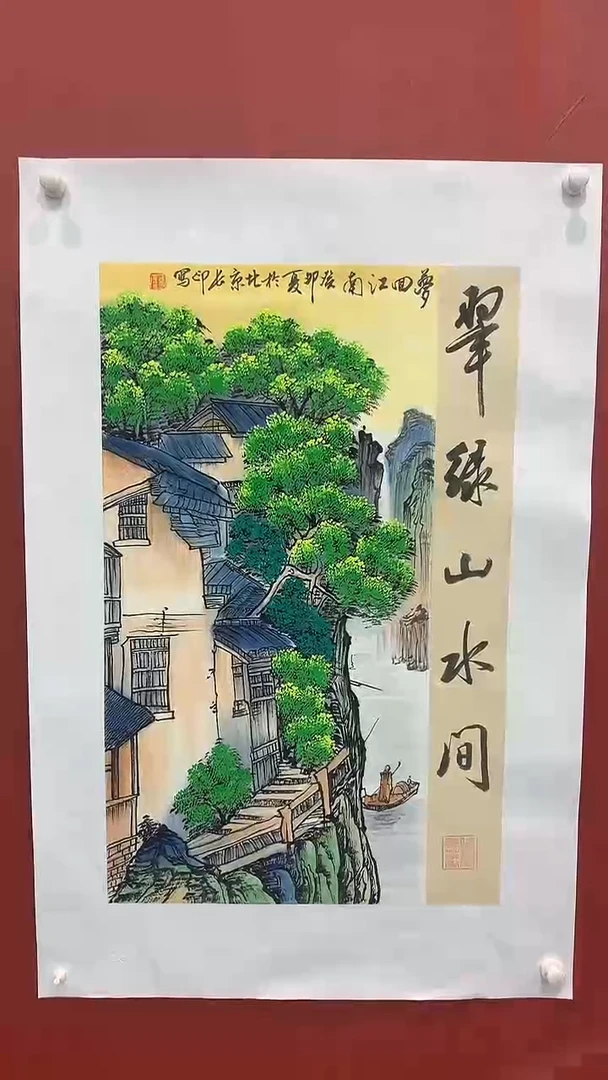 夢回江南 癸卯夏於北京长印写
翠绿山水间